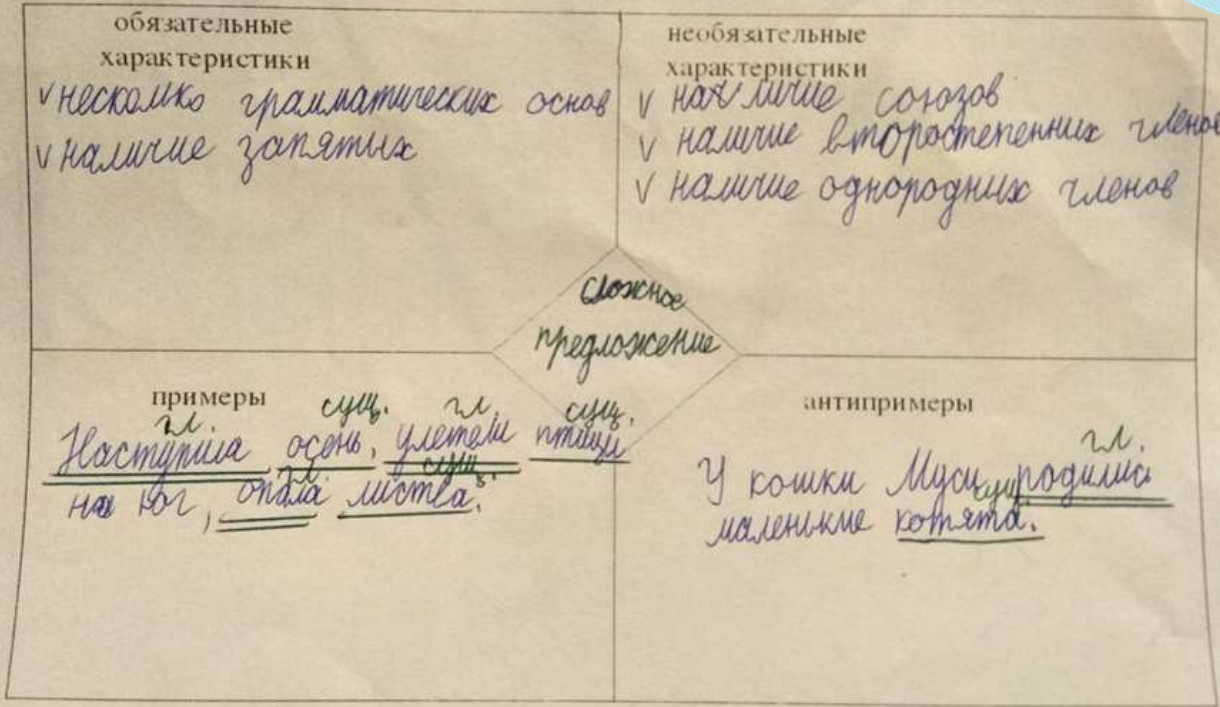 обязательные
характеристики
v несколко грамматических основ
v наличие запятых
необязательные
характеристики
v наличие союзов
v наличие второстепенних членов
v наличие однородних членов
Сложное
предложение
примеры
гл. сущ. гл. сущ.
Наступила осень, улетели птицы
гл. сущ.
на юг, опала листва.
антипримеры
гл.
У кошки Муси родились
сущ.
маленькие котята.